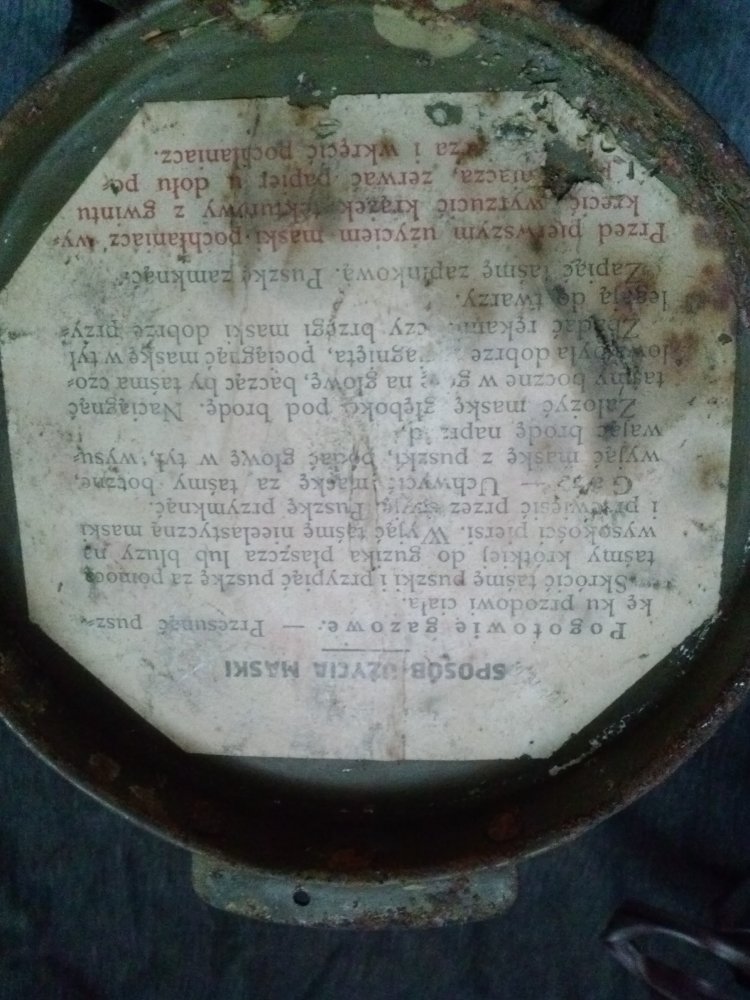 SPOSÓB UŻYCIA MASKI
Pogotowie gazowe. — Przesunąć pusz-
kę ku przodowi ciała.
Skrócić taśmę puszki i przypiąć puszkę za pomocą
taśmy krótkiej do guzika płaszcza lub bluzy na
wysokości piersi. Wyjąć taśmę nieelastyczną maski
i przewiesić przez szyję. Puszkę przymknąć.
Gaz — Uchwycić maskę za taśmy boczne,
wyjąć maskę z puszki, podać głowę w tył, wysu-
wając brodę naprzód.
Założyć maskę głęboko pod brodę. Naciągnąć
taśmy boczne w górę na głowę, bacząc by taśma czo-
łowa była dobrze naciągnięta, pociągnąć maskę w tył
Zbadać rękami czy brzegi maski dobrze przy-
legają do twarzy.
Zapiąć taśmę zapinkową. Puszkę zamknąć.
Przed pierwszym użyciem maski pochłaniacz wy-
kręcić wyrzucić krążek tekturowy z gwintu
zerwać papier u dołu po-
i wkręcić pochłaniacz.